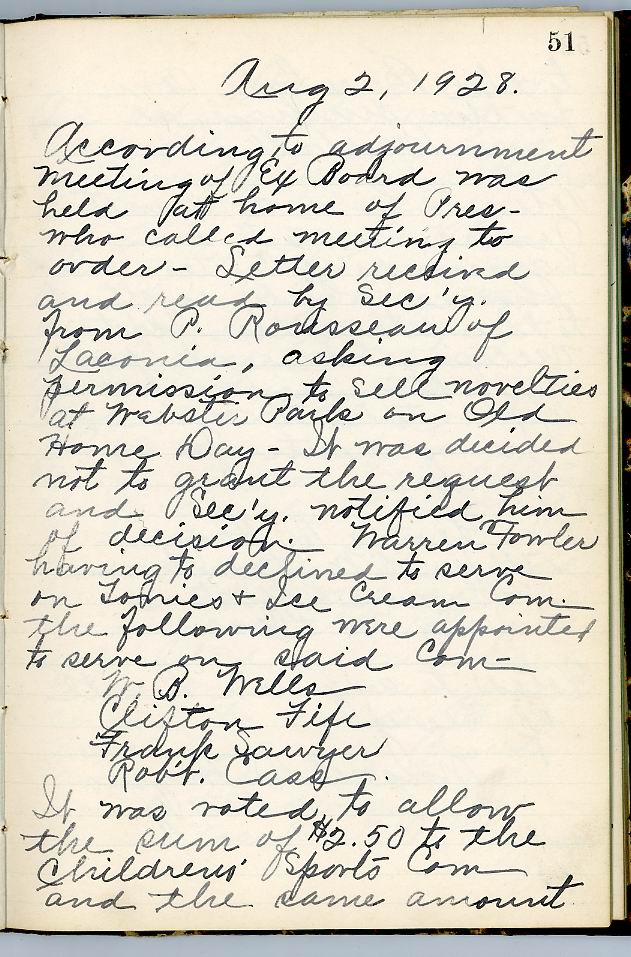 51
Aug 2, 1928.
According to adjournment
meeting of Ex Board was
held at home of Pres-
who called meeting to
order - Letter received
and read by Sec'y.
from P. Rousseau of
Laconia, asking
permission to sell novelties
at Webster Park on Old
Home Day - It was decided
not to grant the request
and Sec'y. notified him
of decision. Warren Fowler
having to declined to serve
on Tonics & Ice Cream Com.
the following were appointed
to serve on said Com-
W. B. Wells
Clifton Fife
Frank Sawyer
Rob't. Cass.
It was voted to allow
the sum of $2.50 to the
Childrens' Sports Com
and the same amount